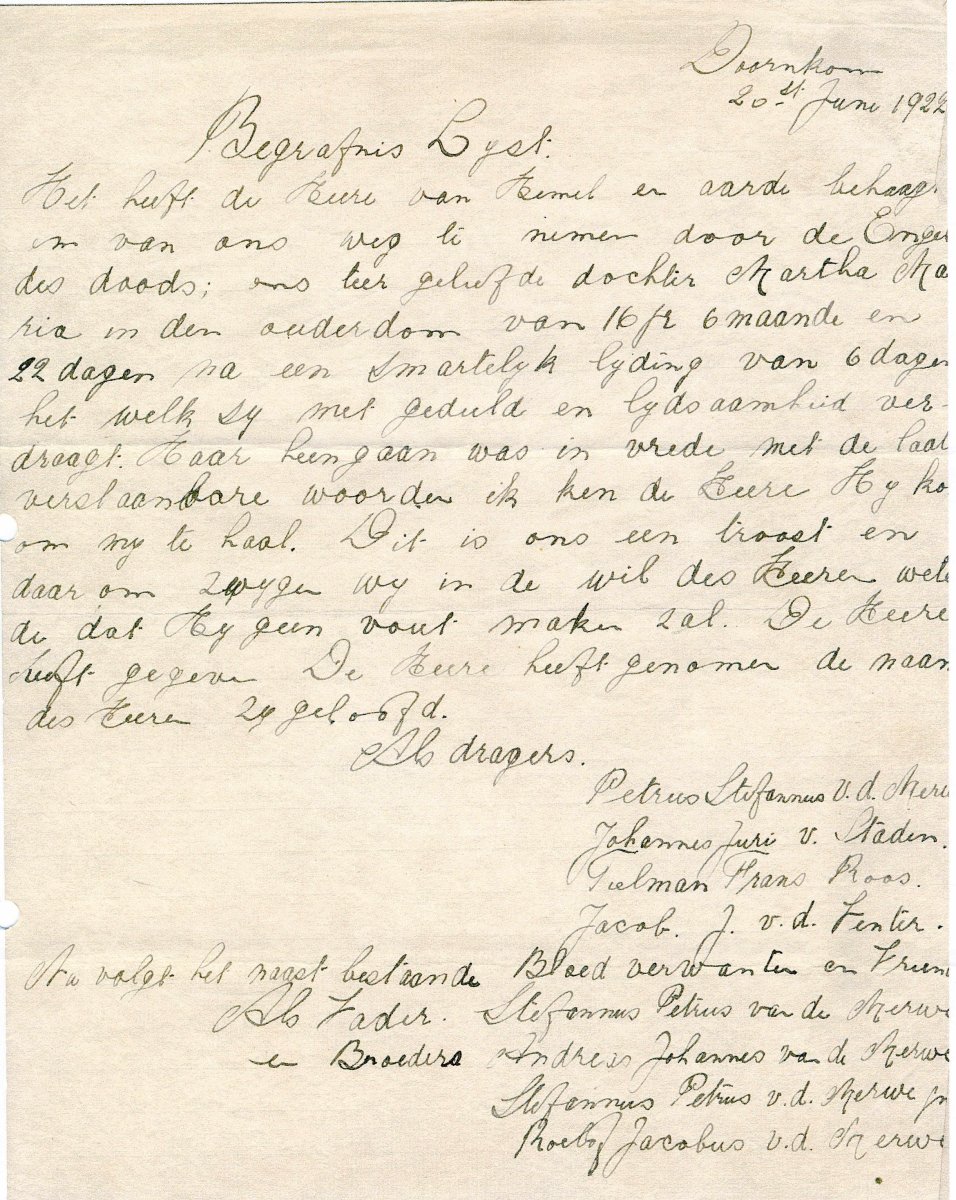 Doornkom
20st Juni 1922
Begrafnis Lyst.
Het heeft de Heere van Hemel en aarde behaagt
om van ons weg te nemen door de Engel
des doods; ons teer geliefde dochter Martha Ma
ria in den ouderdom van 16 jr 6 maande en
22 dagen na een smartelyk lyding van 6 dagen
het welk sy met geduld en lydsaamheid ver-
draagt. Haar heengaan was in vrede met de laat
verstaanbare woorden ik ken de Heere Hy ko
om my te haal. Dit is ons een troost en
daar om zwygen wy in de wil des Heeren wete
de dat Hy geen vout maken zal. De Heere
heeft gegeven De Heere heeft genomen de naam
des Heeren zy geloofd.
Als dragers.
Petrus Stefannus v.d. Merw
Johannes Juri v. Staden.
Tielman Frans Roos.
Jacob. J. v.d. Venter.
Nu volgt het naast bestaande Bloed verwanten en Vriend
Als Vader. Stefannus Petrus van de Merwe
en Broeders Andreas Johannes van de Merwe
Stefannus Petrus v.d. Merwe jn
Roelof Jacobus v.d. Merwe